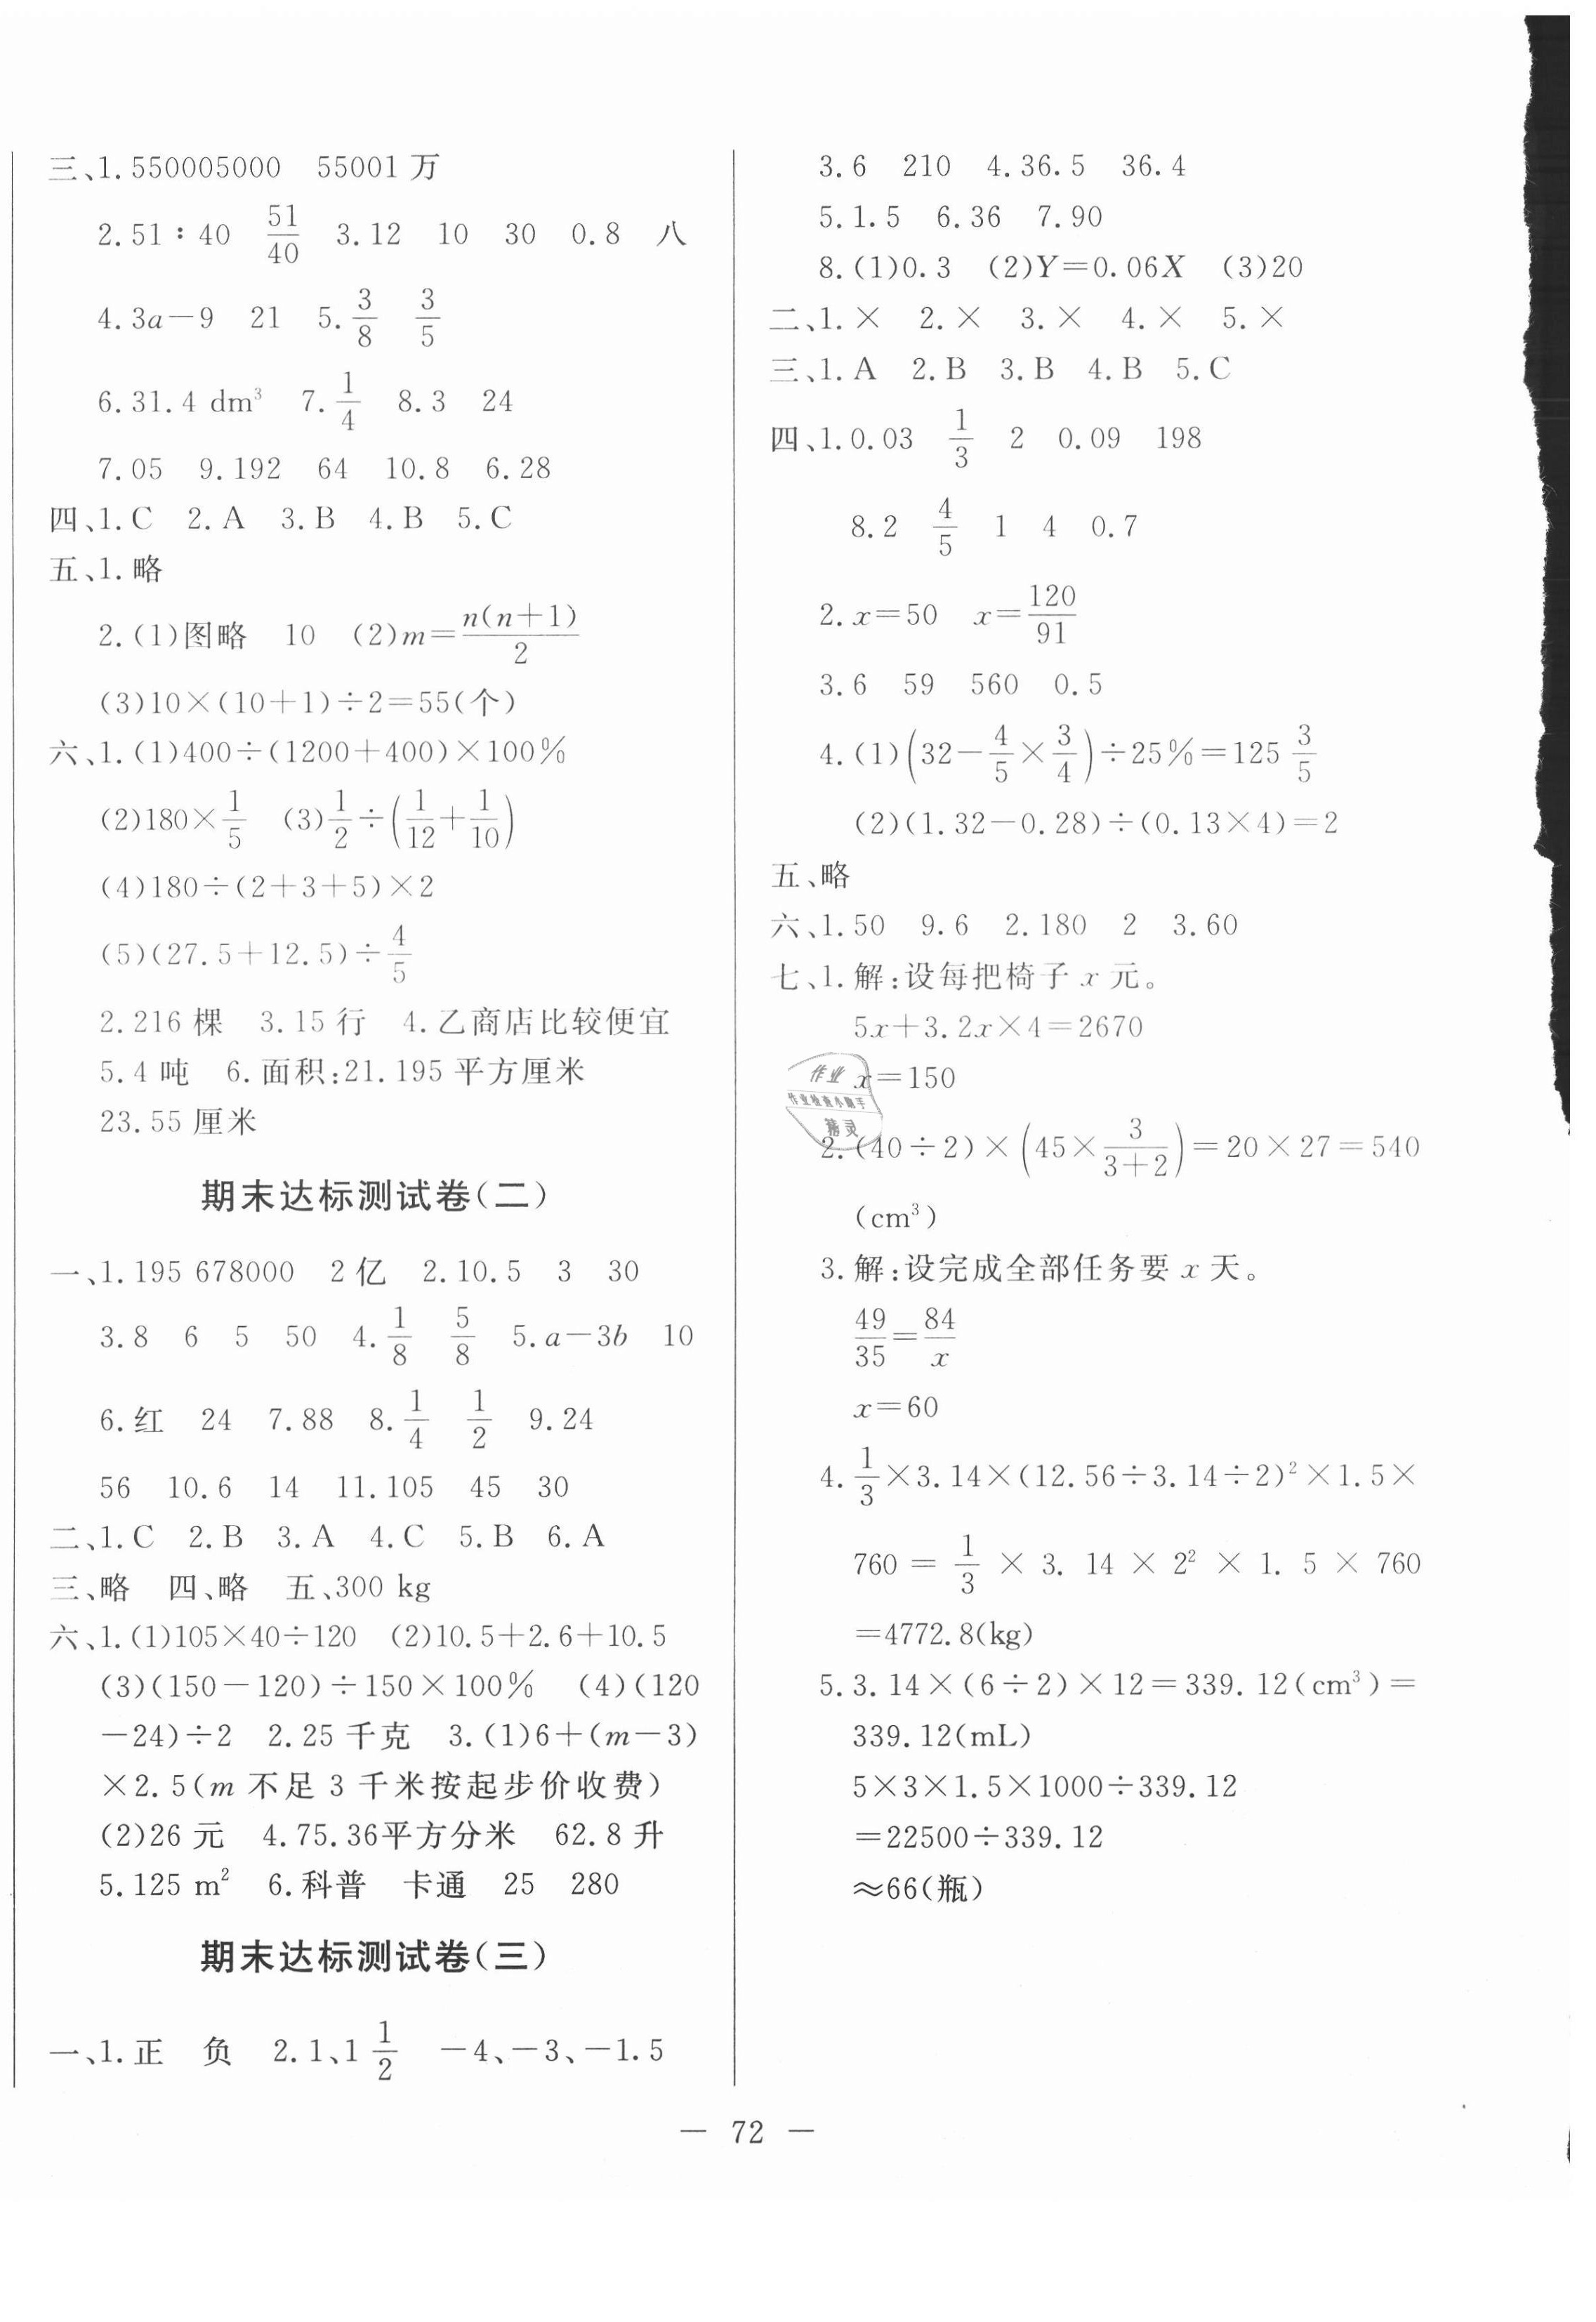 三、1.550005000 55001万
2.51∶40 51/40 3.12 10 30 0.8 八
4.3a－9 21 5.3/8 3/5
6.31.4 dm³ 7.1/4 8.3 24
7.05 9.192 64 10.8 6.28
四、1.C 2.A 3.B 4.B 5.C
五、1.略
2.(1)图略 10 (2)m=n(n+1)/2
(3)10×(10+1)÷2=55(个)
六、1.(1)400÷(1200+400)×100%
(2)180×1/5 (3)1/2÷(1/12+1/10)
(4)180÷(2+3+5)×2
(5)(27.5+12.5)÷4/5
2.216棵 3.15行 4.乙商店比较便宜
5.4吨 6.面积:21.195平方厘米
23.55厘米
期末达标测试卷(二)
一、1.195 678000 2亿 2.10.5 3 30
3.8 6 5 50 4.1/8 5/8 5.a－3b 10
6.红 24 7.88 8.1/4 1/2 9.24
56 10.6 14 11.105 45 30
二、1.C 2.B 3.A 4.C 5.B 6.A
三、略 四、略 五、300 kg
六、1.(1)105×40÷120 (2)10.5+2.6+10.5
(3)(150－120)÷150×100% (4)(120
－24)÷2 2.25千克 3.(1)6+(m－3)
×2.5(m不足3千米按起步价收费)
(2)26元 4.75.36平方分米 62.8升
5.125 m² 6.科普 卡通 25 280
期末达标测试卷(三)
一、1.正 负 2.1、1 1/2 －4、－3、－1.5
3.6 210 4.36.5 36.4
5.1.5 6.36 7.90
8.(1)0.3 (2)Y=0.06X (3)20
二、1.× 2.× 3.× 4.× 5.×
三、1.A 2.B 3.B 4.B 5.C
四、1.0.03 1/3 2 0.09 198
8.2 4/5 1 4 0.7
2.x=50 x=120/91
3.6 59 560 0.5
4.(1)(32－4/5×3/4)÷25%=125 3/5
(2)(1.32－0.28)÷(0.13×4)=2
五、略
六、1.50 9.6 2.180 2 3.60
七、1.解:设每把椅子x元。
5x+3.2x×4=2670
x=150
作业
作业检查小助手
2.(40÷2)×(45×3/(3+2))=20×27=540
(cm³)
3.解:设完成全部任务要x天。
49/35=84/x
x=60
4.1/3×3.14×(12.56÷3.14÷2)²×1.5×
760=1/3×3.14×2²×1.5×760
=4772.8(kg)
5.3.14×(6÷2)×12=339.12(cm³)=
339.12(mL)
5×3×1.5×1000÷339.12
=22500÷339.12
≈66(瓶)
— 72 —